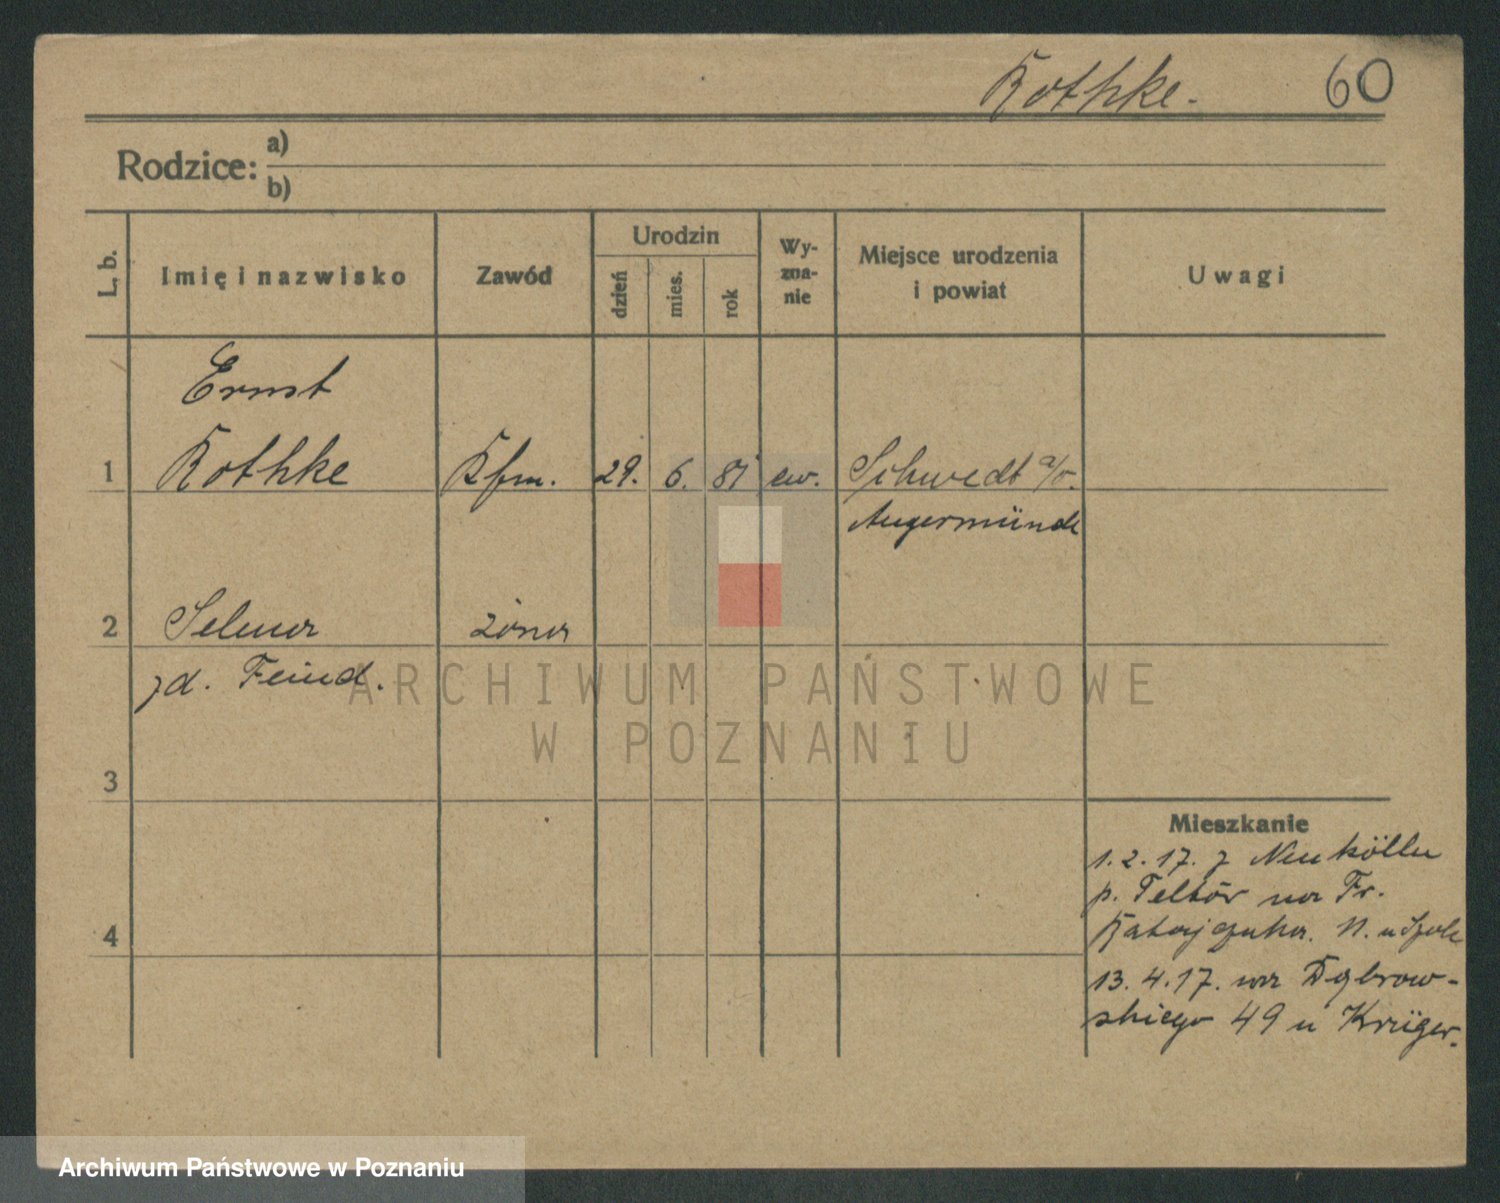 Rothke. 60
Rodzice: a)
b)
L. b. Imię i nazwisko Zawód Urodzin dzień mies. rok Wy-zna-nie Miejsce urodzenia i powiat Uwagi
Ernst
1 Rothke Kfm. 29. 6. 81 ew. Schwedt a/o.
Angermünde
2 Selma żona
zd. Feind.
3
4
Mieszkanie
1.2.17. z Neukölln
p. Teltów na Fr.
Ratajczaka. 11. u
13.4.17. na Dąbrow-
skiego 49 u Krüger.
ARCHIWUM PAŃSTWOWE
W POZNANIU
Archiwum Państwowe w Poznaniu